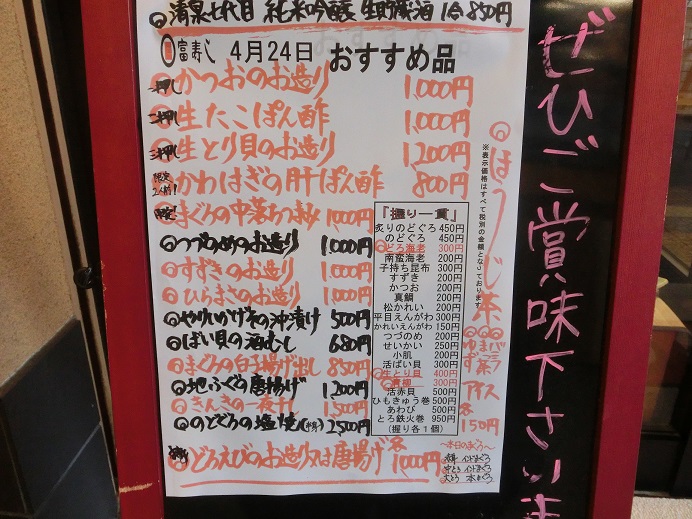 ◎清泉七代目 純米吟醸 生貯蔵酒 1合 850円
富寿し 4月24日 おすすめ品
一押し かつおのお造り 1,000円
二押し 生たこぽん酢 1,000円
三押し 生とり貝のお造り 1,200円
限定2名前! かわはぎの肝ぽん酢 800円
限定! まぐろの中落ちつまみ 1,000円
◎つづのめのお造り 1,000円
◎すずきのお造り 1,000円
◎ひらまさのお造り 1,000円
◎やりいかげその沖漬け 500円
◎ばい貝の酒むし 680円
◎まぐろの白子揚げ出し 850円
◎地ふぐの唐揚げ 1,200円
◎きんきの一夜干し 1,500円
◎のどぐろの塩焼 2,500円
◎どろえびのお造り又は唐揚げ 各1,000円
『握り一貫』
炙りのどぐろ 450円
のどぐろ 450円
◎どろ海老 300円
南蛮海老 200円
子持ち昆布 300円
すずき 200円
かつお 200円
真鯛 200円
松かれい 200円
平目えんがわ 300円
かれいえんがわ 150円
つづのめ 200円
せいかい 250円
小肌 200円
活ばい貝 300円
◎生とり貝 400円
◎青柳 300円
活赤貝 500円
ひもきゅう巻 500円
あわび 500円
とろ鉄火巻 950円
(握り各1個)
※表示価格はすべて税別の金額となっております
◎ほうじ茶アイス
◎ゆず
◎バニラ
各150円
～本日のまぐろ～
赤身 インドまぐろ
中とろ インドまぐろ
大とろ 本まぐろ
ぜひご賞味下さいま